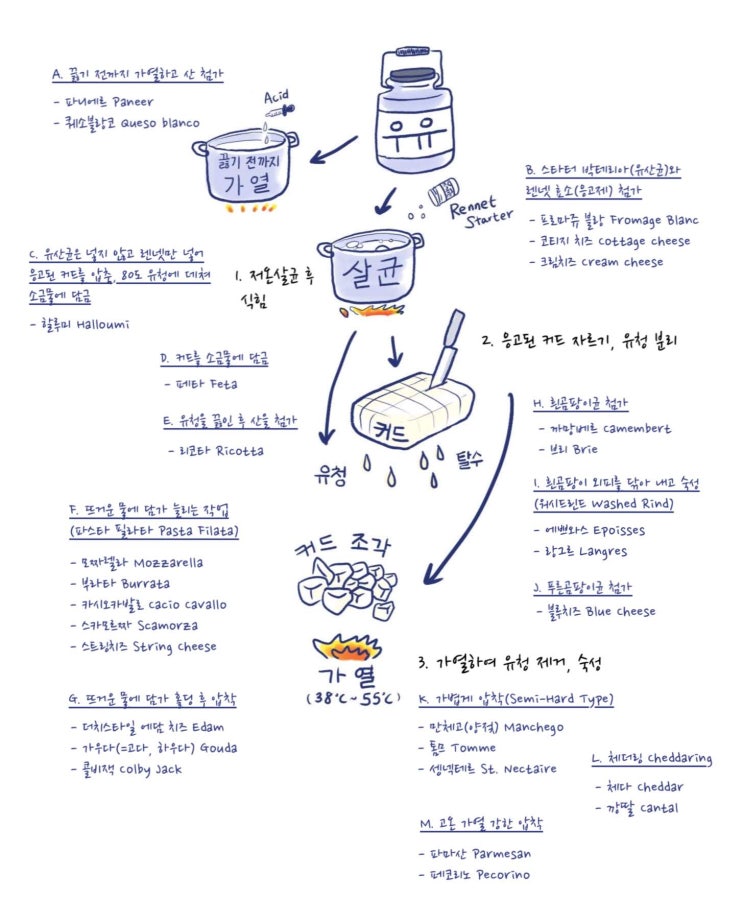 A. 끓기 전까지 가열하고 산 첨가
- 파니에르 Paneer
- 퀘소블랑코 Queso blanco
Acid
끓기 전까지
가열
Rennet
Starter
B. 스타터 박테리아(유산균)와
렌넷 효소(응고제) 첨가
- 프로마쥬 블랑 Fromage Blanc
- 코티지 치즈 cottage cheese
- 크림치즈 cream cheese
C. 유산균은 넣지 않고 렌넷만 넣어
응고된 커드를 압축, 80도 유청에 데쳐
소금물에 담금
- 할루미 Halloumi
1. 저온살균 후
식힘
살균
2. 응고된 커드 자르기, 유청 분리
D. 커드를 소금물에 담금
- 페타 Feta
E. 유청을 끓인 후 산을 첨가
- 리코타 Ricotta
커드
유청
탈수
H. 흰곰팡이균 첨가
- 까망베르 camembert
- 브리 Brie
I. 흰곰팡이 외피를 닦아 내고 숙성
(워시드린드 Washed Rind)
- 에쁘와스 Epoisses
- 랑그르 Langres
J. 푸른곰팡이균 첨가
- 블루치즈 Blue cheese
F. 뜨거운 물에 담가 늘리는 작업
(파스타 필라타 Pasta Filata)
- 모짜렐라 Mozzarella
- 부라타 Burrata
- 카시오카발로 cacio cavallo
- 스카모르짜 Scamorza
- 스트링치즈 String cheese
커드 조각
가열
(38℃~55℃)
3. 가열하여 유청 제거, 숙성
G. 뜨거운 물에 담가 홀딩 후 압착
- 더치스타일 에담 치즈 Edam
- 가우다(=고다, 하우다) Gouda
- 콜비잭 Colby Jack
K. 가볍게 압착(Semi-Hard Type)
- 만체고(양젖) Manchego
- 톰므 Tomme
- 생넥테르 St. Nectaire
L. 체더링 cheddaring
- 체다 cheddar
- 깡딸 cantal
M. 고온 가열 강한 압착
- 파마산 Parmesan
- 페코리노 Pecorino